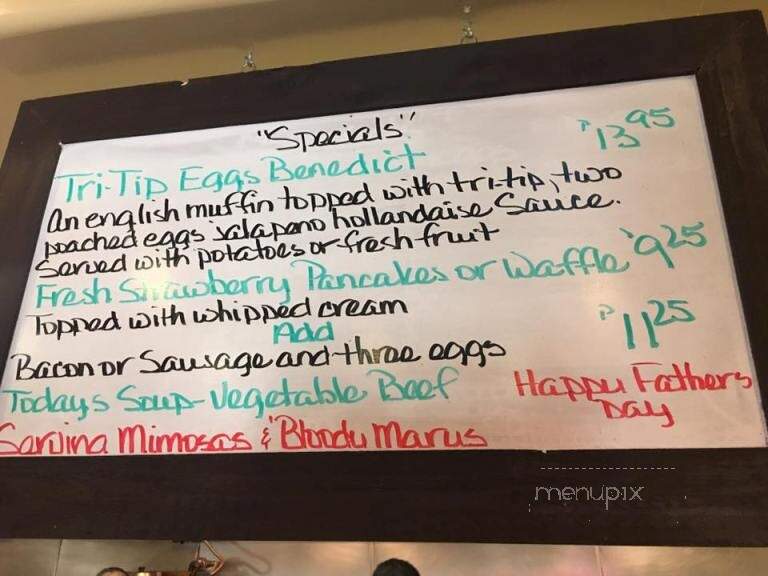 "Specials"
Tri-Tip Eggs Benedict $13.95
An english muffin topped with tri-tip, two
poached eggs jalapeno hollandaise Sauce.
Served with potatoes or fresh fruit
Fresh Strawberry Pancakes or Waffle $9.25
Topped with whipped cream
Add $11.25
Bacon or Sausage and three eggs
Todays Soup-Vegetable Beef
Happy Fathers
Day
Serving Mimosas & Bloody Marys
menupix